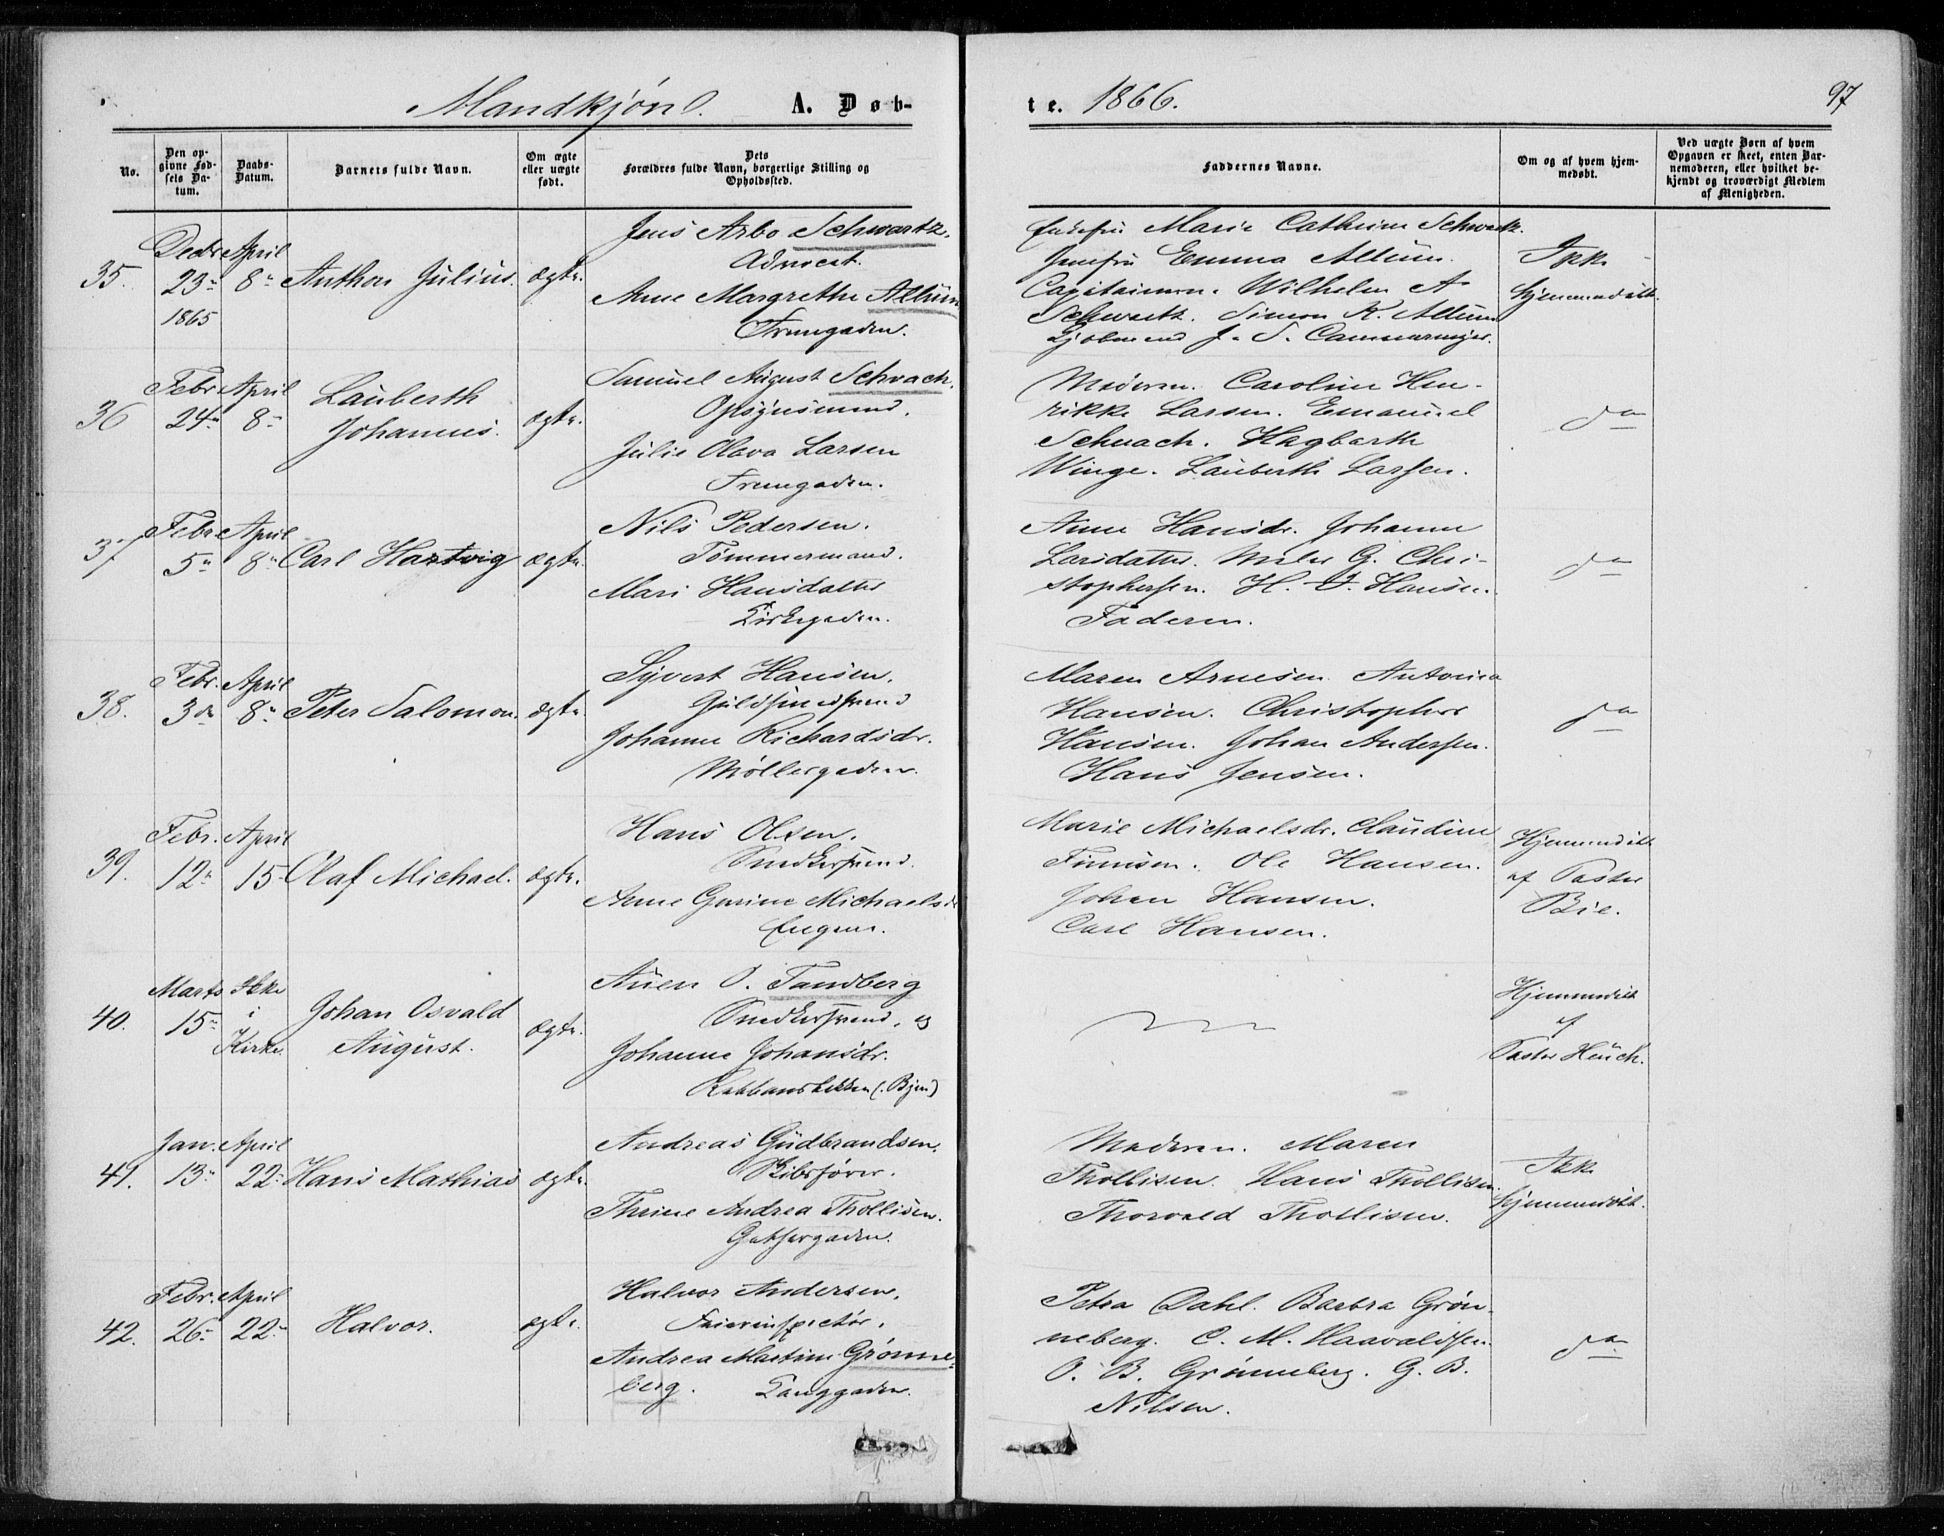 Mandkjøn. A. Døb-
te. 1866.
97
No.
Den op-
givne Fød-
sels Da-
tum.
Daabs-
Datum.
Barnets fulde Navn.
Om ægte
eller uægte
født.
Dets
Forældres fulde Navn, borgerlige Stilling og
Opholdssted.
Faddernes Navne.
Om og af hvem hjem-
medøbt.
Ved uægte Børn af hvem
Opgaven er skeet, enten Bar-
nemoderen, eller hvilket be-
kjendt og troværdigt Medlem
af Menigheden.
35.
Decbr
23
1865
April
8
Anthon Julius.
ægte.
Jens Arbo Schwartz.
Advocat.
Anne Margrethe Altum
Marie Cathrine Schwartz.
Jomfru Emma Altum.
Wilhelm A.
Schwartz. Simon K. Altum
J. S. Cammermeyer.
Ikke
hjemmedøbt.
36
Febr
24
April
8
Lauberth
Johannes.
ægte.
Samuel August Schvach.
Opsynsmand.
Julie Olava Larsen
Moderen. Caroline Hen-
rikke Larsen. Emanuel
Schvach. Hagbarth
Winge. Lauberth Larsen.
do
37
Febr
5
April
8
Carl Hartvig
ægte.
Nils Pedersen.
Tømmermand.
Mari Hansdatter
Kirkegaden.
Anne Hansdr. Johanne
Larsdatter. G. Chri-
stophersen. H. J. Hansen.
Faderen.
do
38.
Febr.
3
April
8
Peter Salomon.
ægte.
Syvert Hansen.
Guldsmedsvend
Johanne Richardsdr.
Møllergaden.
Maren Arnesen. Antonia
Hansen. Christopher
Hansen. Johan Andersen.
Hans Jensen.
do
39.
Febr.
12
April
15
Olaf Michael.
ægte.
Hans Olsen.
Snedkersvend.
Anne Gurine Michaelsdr
Engene.
Marie Michaelsdr. Claudine
Ole Hansen.
Johan Hansen.
Carl Hansen.
Hjemmedøbt
af Pastor
Bie.
40.
Marts
15
Ikke
i
Kirke.
Johan Osvald
August.
ægte.
Auen O. Tandberg
Snedkersvend, og
Johanne Johansdr.
Hjemmedøbt
af
Pastor Heuch.
41.
Jan.
13
April
22
Hans Mathias
ægte.
Andreas Gudbrandsen.
Skibsfører.
Thrine Andrea Thollisen.
Moderen. Maren
Thollisen. Hans Thollisen
Thorvald Thollisen.
Ikke
hjemmedøbt.
42.
Febr.
26
April
22
Halvor.
ægte.
Halvor Andersen.
Andrea Martine Grønne-
berg. Langgaden.
Petra Dahl. Barbra Grøn-
neberg. C. M. Haavaldsen.
O. B. Grønneberg. G. B.
Nilsen.
do